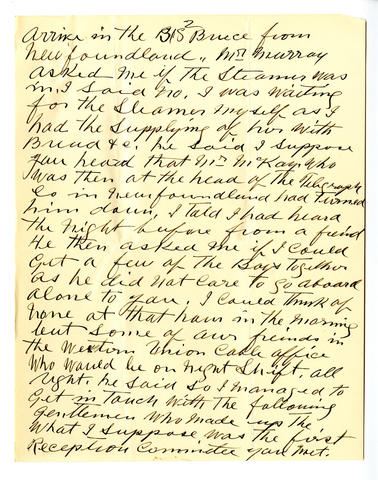 arrive in the B/S Bruce from
Newfoundland,, Mr Murray
asked me if the Steamer was
in, I said no, I was waiting
for the Steamer myself as I
had the supplying of her with
Bread &c, he said I suppose
you heard that Mr McKay who
was then at the head of the Telegraph
Co in Newfoundland had turned
him down, I told I had heard
the night before from a friend
He then asked me if I could
get a few of the Boys together
as he did not care to go aboard
alone to you, I could think of
none at that hour in the morning
but some of our friends in
the Western Union Cable office
who would be on night Shift. all
right, he said So I managed to
get in touch with the following
Gentlemen who made up the
what I suppose was the first
Reception Committee you met.